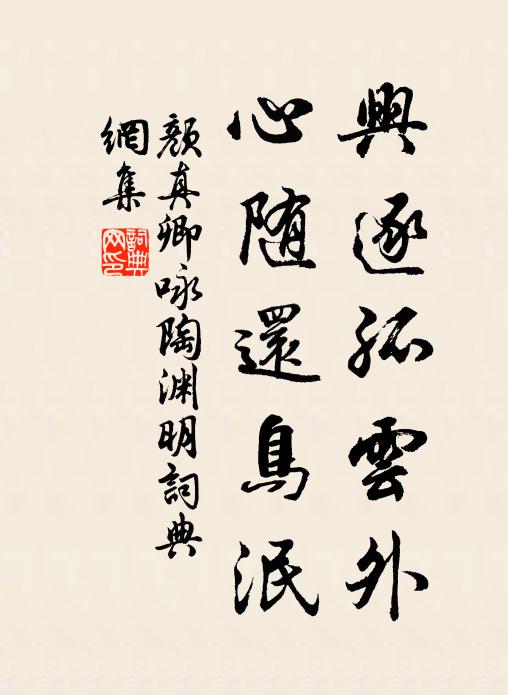 興逐孤雲外
心随還鳥泯
顏真卿咏陶渊明詞典
網集
詞典網印